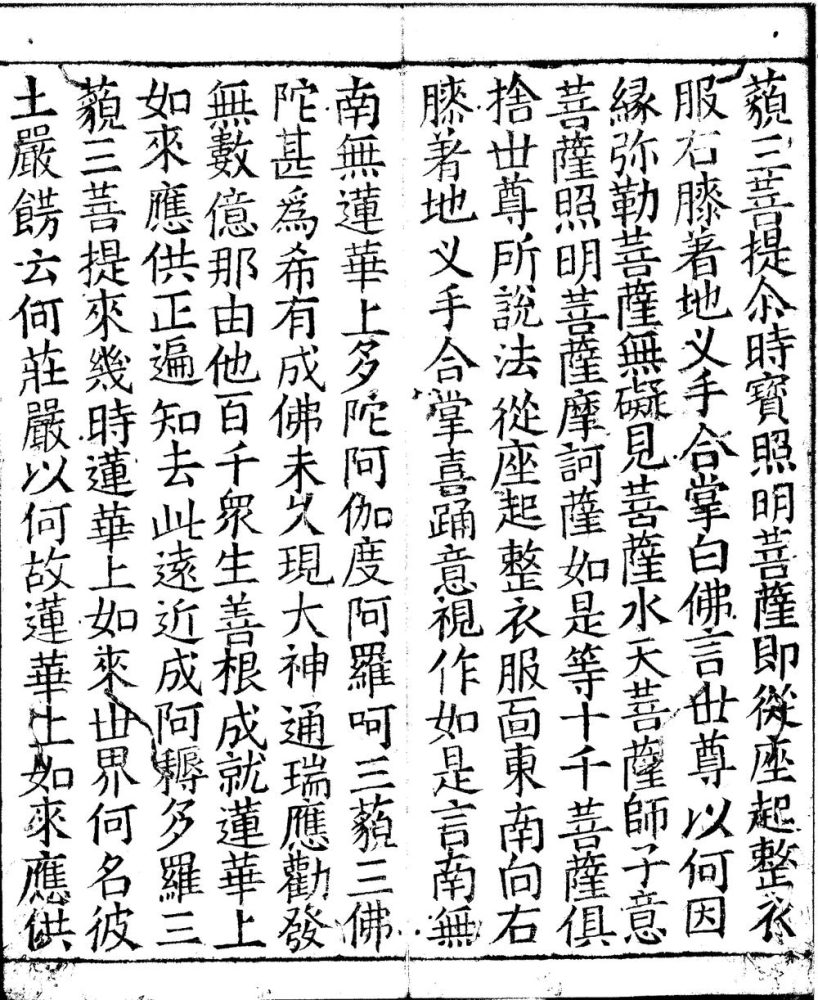 藐三菩提尒時寶照明菩薩即從座起整衣
服右膝著地叉手合掌白佛言世尊以何因
緣弥勒菩薩無礙見菩薩水天菩薩師子意
菩薩照明菩薩摩訶薩如是等十千菩薩俱
捨世尊所說法從座起整衣服面東南向右
膝著地叉手合掌喜踊意視作如是言南無
南無蓮華上多陀阿伽度阿羅呵三藐三佛
陀甚爲希有成佛未久現大神通瑞應勸發
無數億那由他百千衆生善根成就蓮華上
如來應供正遍知去此遠近成阿耨多羅三
藐三菩提來幾時蓮華上如來世界何名彼
土嚴餝云何莊嚴以何故蓮華上如來應供